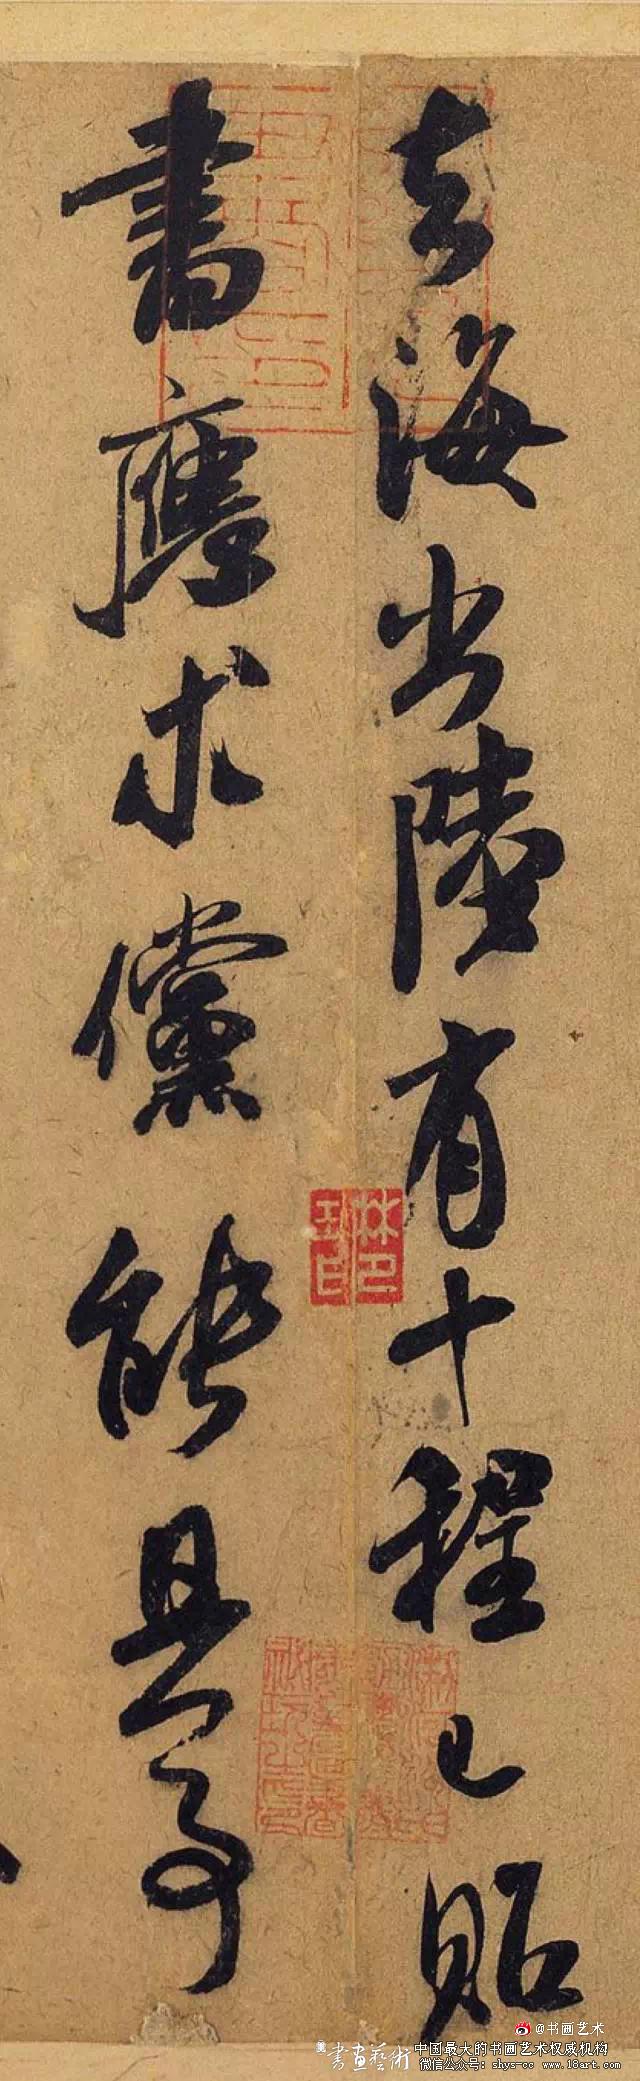 去海出陸有十程已貽
書應求儻能具事
@书画艺术
書画藝術
中国最大的书画艺术权威机构
微信公众号: shys-cc www.18art.com